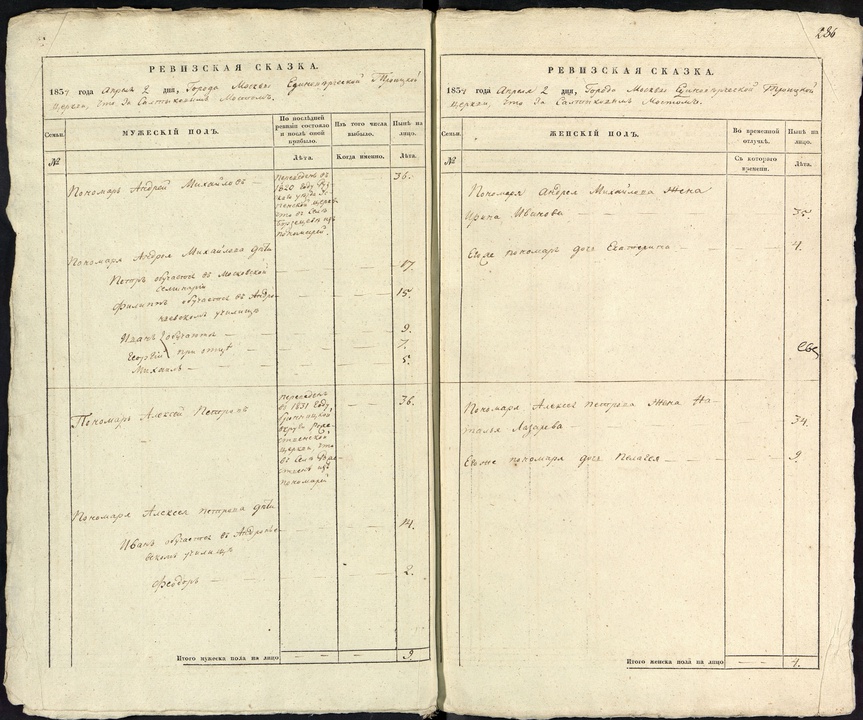 РЕВИЗСКАЯ СКАЗКА.
1837 года Апреля 2 дня, Города Москвы Единоверческой Троицкой
Церкви, что за Салтыковымъ Мостомъ.
Семьи.
МУЖЕСКІЙ ПОЛЪ.
По послѣдней ревизіи состояло и послѣ оной прибыло.
Изъ того числа выбыло.
Нынѣ на лицо.
№
Лѣта.
Когда именно.
Лѣта.
Пономарь Андрей Михайловъ
переведенъ въ
1820 году
36.
Пономаря Андрея Михайлова дѣти
Петръ обучается въ Московской
Семинаріи
17.
Филиппъ обучается въ Андро-
ньевскомъ училищѣ
15.
Иванъ обучаются
9.
Георгій при отцѣ
7.
Михаилъ
5.
Пономарь Алексѣй Петровъ
переведенъ
въ 1831 году
церкви, что
въ Селѣ
пономарей
36.
Пономаря Алексея Петрова дѣти
Иванъ обучается въ Андроньев-
скомъ училищѣ
14.
Феодоръ
2.
Итого мужеска пола на лицо
9.
236
РЕВИЗСКАЯ СКАЗКА.
1837 года Апреля 2 дня, Города Москвы Единоверческой Троицкой
Церкви, что за Салтыковымъ Мостомъ.
Семьи.
ЖЕНСКІЙ ПОЛЪ.
Во временной отлучкѣ.
Нынѣ на лицо.
№
Съ котораго времени.
Лѣта.
Пономаря Андрея Михайлова жена
Ирина Иванова
35.
Егоже пономаря дочь Екатерина
4.
Пономаря Алексея Петрова жена На-
талья Лазарева
34.
Егоже пономаря дочь Пелагея
9.
Итого женска пола на лицо
4.